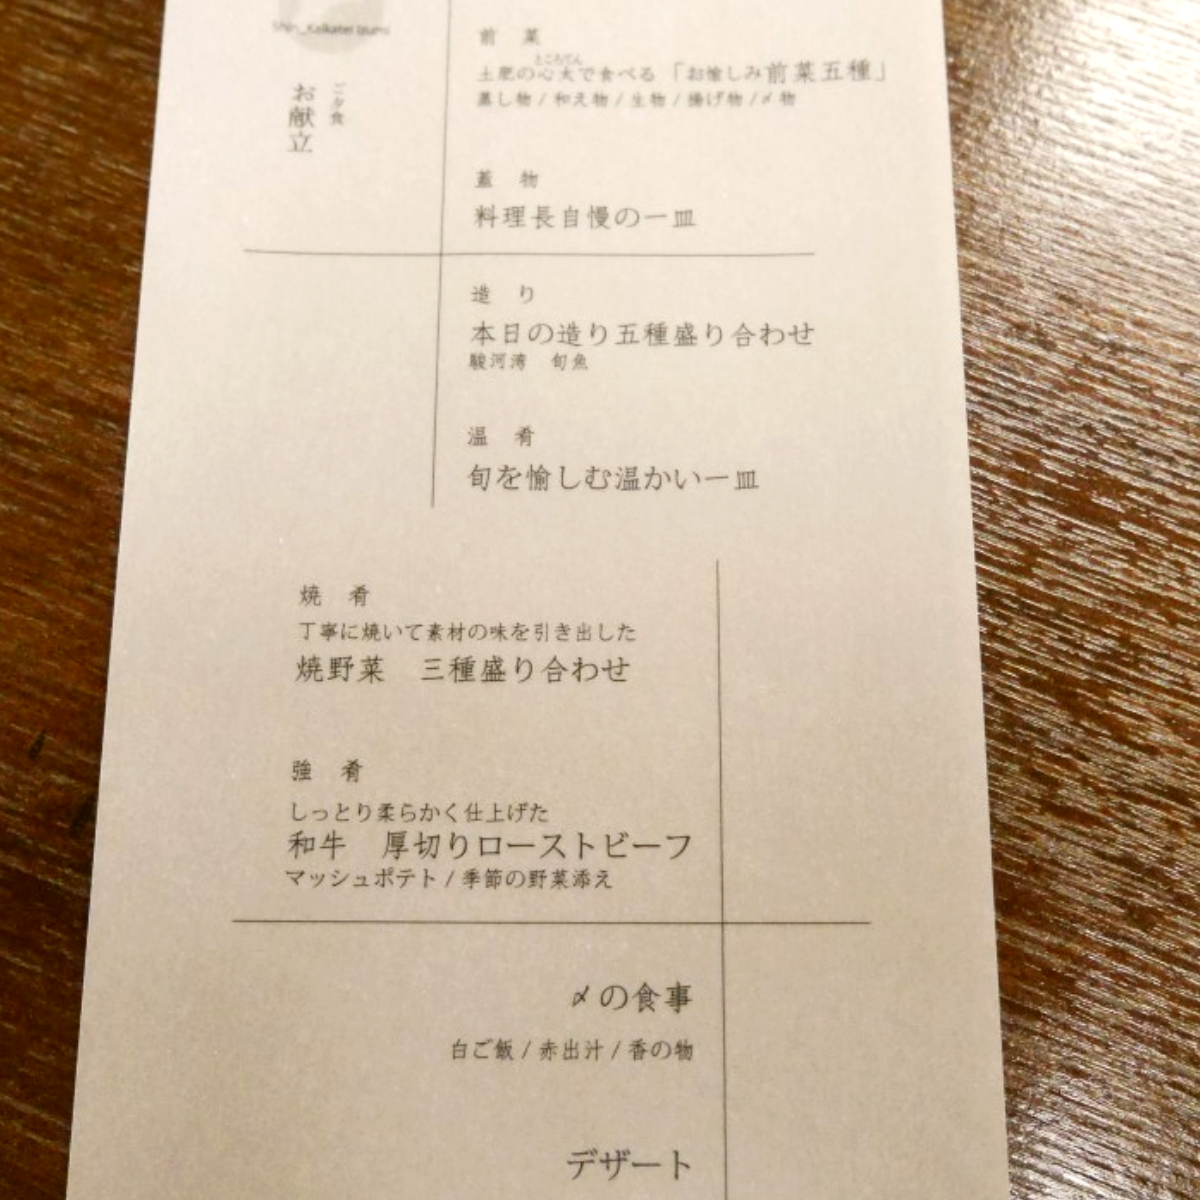 Shin_Kaikatei Izumi
ご夕食
お献立
前 菜
ところてん
土肥の心太で食べる 「お愉しみ前菜五種」
蒸し物 / 和え物 / 生物 / 揚げ物 / 〆物
蓋 物
料理長自慢の一皿
造 り
本日の造り五種盛り合わせ
駿河湾 旬魚
温 肴
旬を愉しむ温かい一皿
焼 肴
丁寧に焼いて素材の味を引き出した
焼野菜 三種盛り合わせ
強 肴
しっとり柔らかく仕上げた
和牛 厚切りローストビーフ
マッシュポテト / 季節の野菜添え
〆の食事
白ご飯 / 赤出汁 / 香の物
デザート